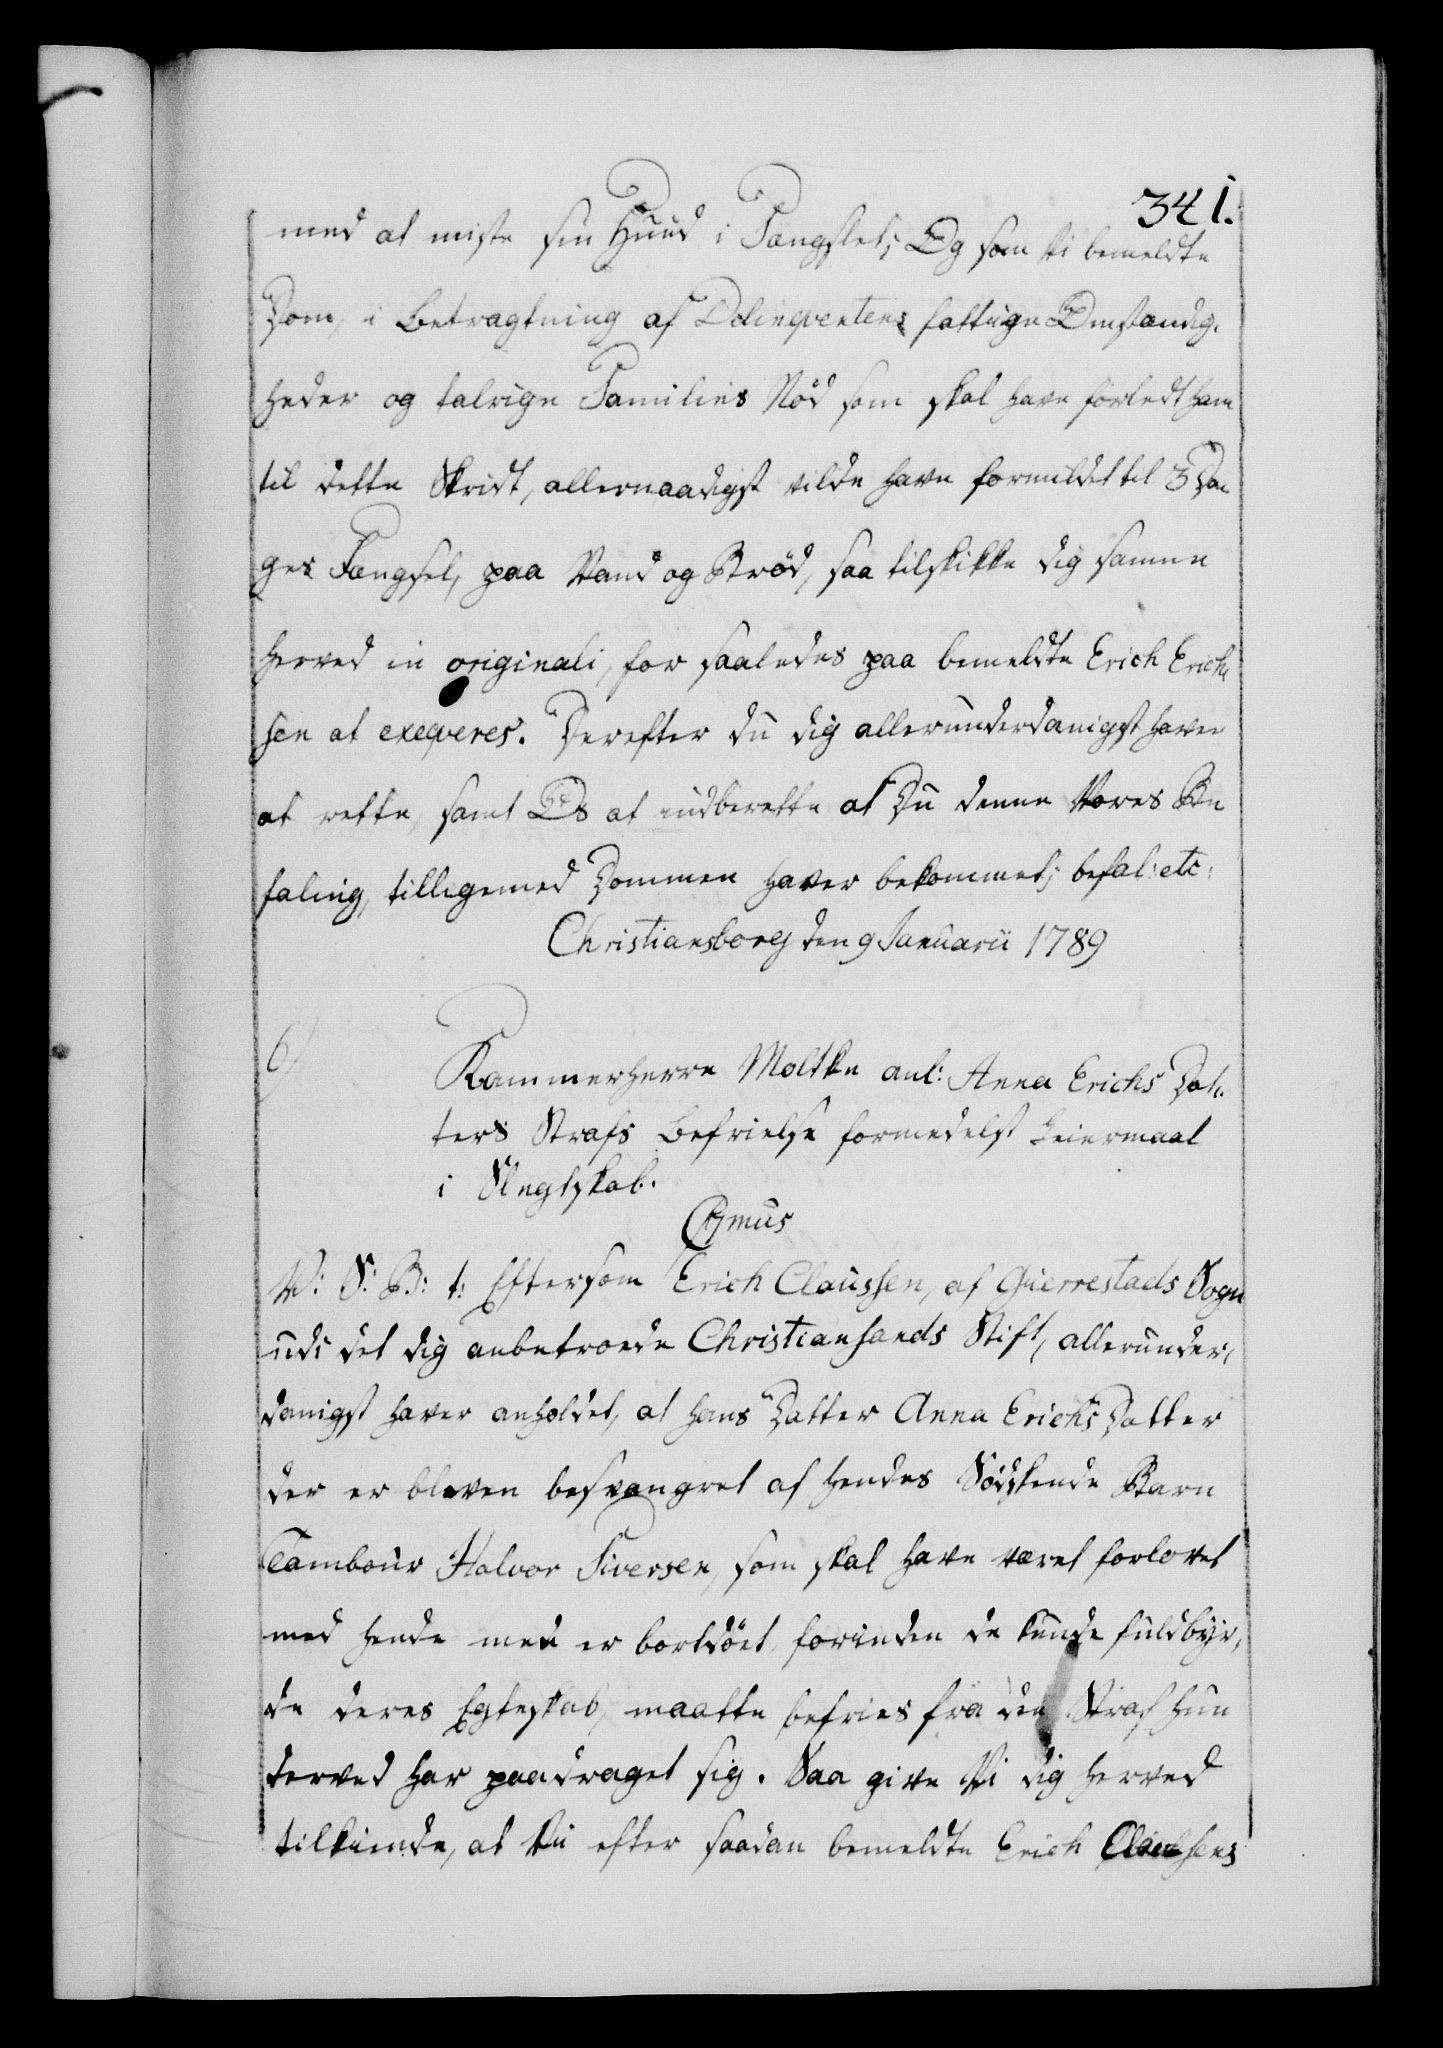 341.
med at miste sin Huud i Fængslet; Og som Vi bemeldte
Dom, i Betragtning af Delinqventens fattige Omstændig-
heder og talrige Families Nød som skal have forledt ham
til dette Skridt, allernaadigst vilde have formildet til 3 Da
ges Fængsel, paa Vand og Brød, saa tilskikke dig samme
herved in originali, for saaledes paa bemeldte Erich Erich
sen at exeqveres. Derefter du dig allerunderdanigst haver
at rette, samt Os at indberette at Du denne Vores Be
faling, tilligemed Dommen haver bekommet; befal: etc:
Christiansborg den 9 Januarii 1789
6)
Kammerherre Moltke anl: Anna Erichs Dat-
ters Strafs Befrielse formedelst Leiermaal
i Slegtskab.
C7mus
V: S: B: t: Eftersom Erich Claussen, af Guerrestads Sogn
udi det dig anbetroede Christiansands Stift, allerunder-
danigst haver anholdet, at hans Datter Anna Erichs Datter
der er bleven besvangret af hendes Sødskende Barn
Tambour Halvor Siversen, som skal have været forlovet
med hende men er bortdöet, forinden de kunde fuldbyr-
de deres Egteskab, maatte befries fra den Straf hun
derved har paadraget sig. Saa give Vi dig herved
tilkiende, at Vi efter saadan bemeldte Erich Claussens